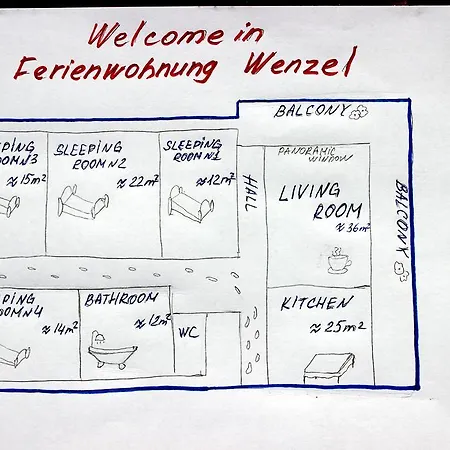 Welcome in
Ferienwohnung Wenzel
BALCONY
PING
OOM N3
≈ 15m²
SLEEPING
ROOM N2
≈ 22m²
SLEEPING
ROOM N1
≈ 12m²
HALL
PANORAMIC
WINDOW
LIVING
ROOM
≈ 36m²
BALCONY
PING
OOM N4
≈ 14m²
BATHROOM
≈ 12m²
WC
KITCHEN
≈ 25m²